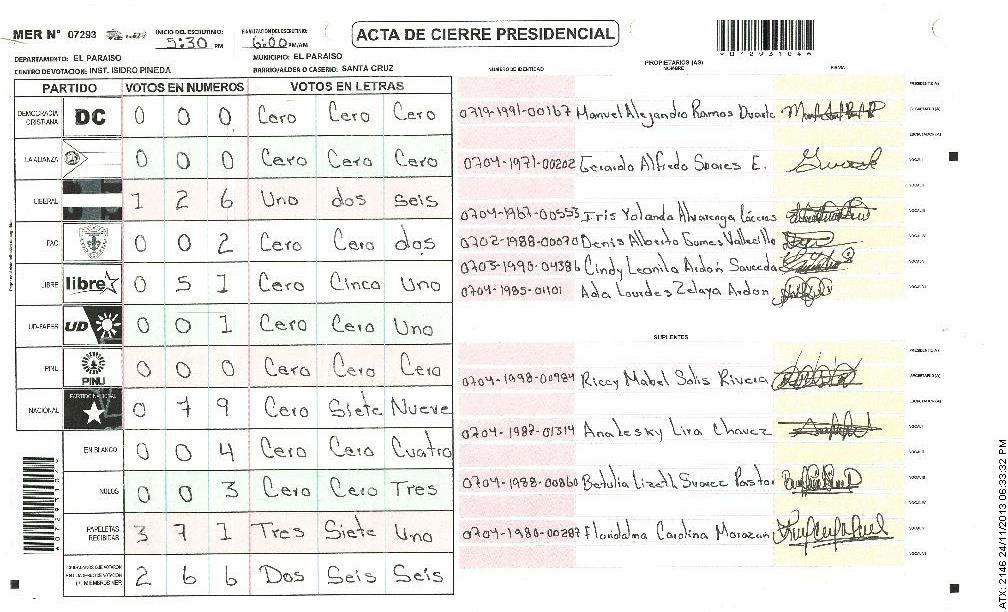 MER N° 07293 INICIO DEL ESCRUTINIO: 5:30 PM FINALIZACION DEL ESCRUTINIO: 6:00 PM/AM
ACTA DE CIERRE PRESIDENCIAL
*07293104*
DEPARTAMENTO: EL PARAISO MUNICIPIO: EL PARAISO
CENTRO DE VOTACION: INST. ISIDRO PINEDA BARRIO/ALDEA O CASERIO: SANTA CRUZ
PARTIDO VOTOS EN NUMEROS VOTOS EN LETRAS
DEMOCRACIA CRISTIANA DC 0 0 0 Cero Cero Cero
LA ALIANZA 0 0 0 Cero Cero Cero
LIBERAL 1 2 6 Uno dos seis
PAC 0 0 2 Cero Cero dos
LIBRE libre 0 5 1 Cero Cinco Uno
UD-FAPER UD 0 0 1 Cero Cero Uno
PINU PINU 0 0 0 Cero Cero Cero
NACIONAL PARTIDO NACIONAL 0 7 9 Cero Siete Nueve
EN BLANCO 0 0 4 Cero Cero Cuatro
NULOS 0 0 3 Cero Cero Tres
PAPELETAS RECIBIDAS 3 7 1 Tres Siete Uno
2 6 6 Dos Seis Seis
NUMERO DE IDENTIDAD PROPIETARIOS (AS) NOMBRE FIRMA
0719-1991-00167 Manuel Alejandro Ramos Duarte
0704-1971-00202 Gerardo Alfredo Suares E.
0704-1967-00553 Iris Yolanda Alvarenga Cáceres
0702-1988-00070 Denis Alberto Gomes Vallecillo
0703-1990-04386 Cindy Leonila Ardón Sauceda
0704-1985-01101 Ada Lourdes Zelaya Ardon
SUPLENTES
0704-1998-00984 Riccy Mabel Solis Rivera
0704-1987-01314 Analesky Lira Chavez
0704-1988-00860 Betulia Lizeth Suarez Pastor
0704-1980-00287 Floridalma Carolina Morazan
ATX: 2146 24/11/2013 06:33:32 PM